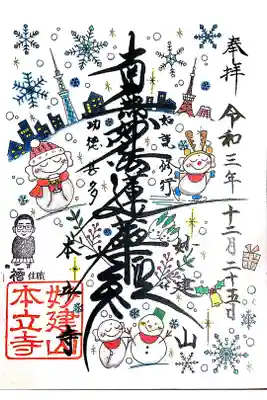 奉拝
令和三年十二月二十五日
如説修行
南無妙法蓮華経
功徳甚多
妙建山
本立寺
住職
妙建山
本立寺